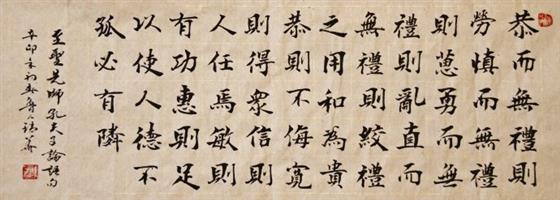 恭而無禮則
勞慎而無禮
則葸勇而無
禮則亂直而
無禮則絞禮
之用和為貴
恭則不侮寬
則得衆信則
人任焉敏則
有功惠則足
以使人德不
孤必有隣
至聖先師孔夫子論語句
辛卯年初